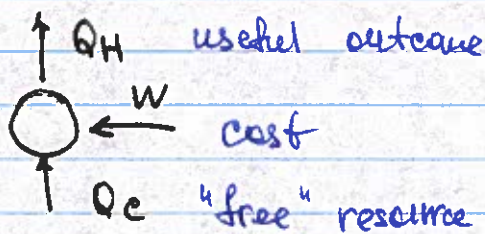 Q_H useful outcome
W cost
Q_C "free" resource